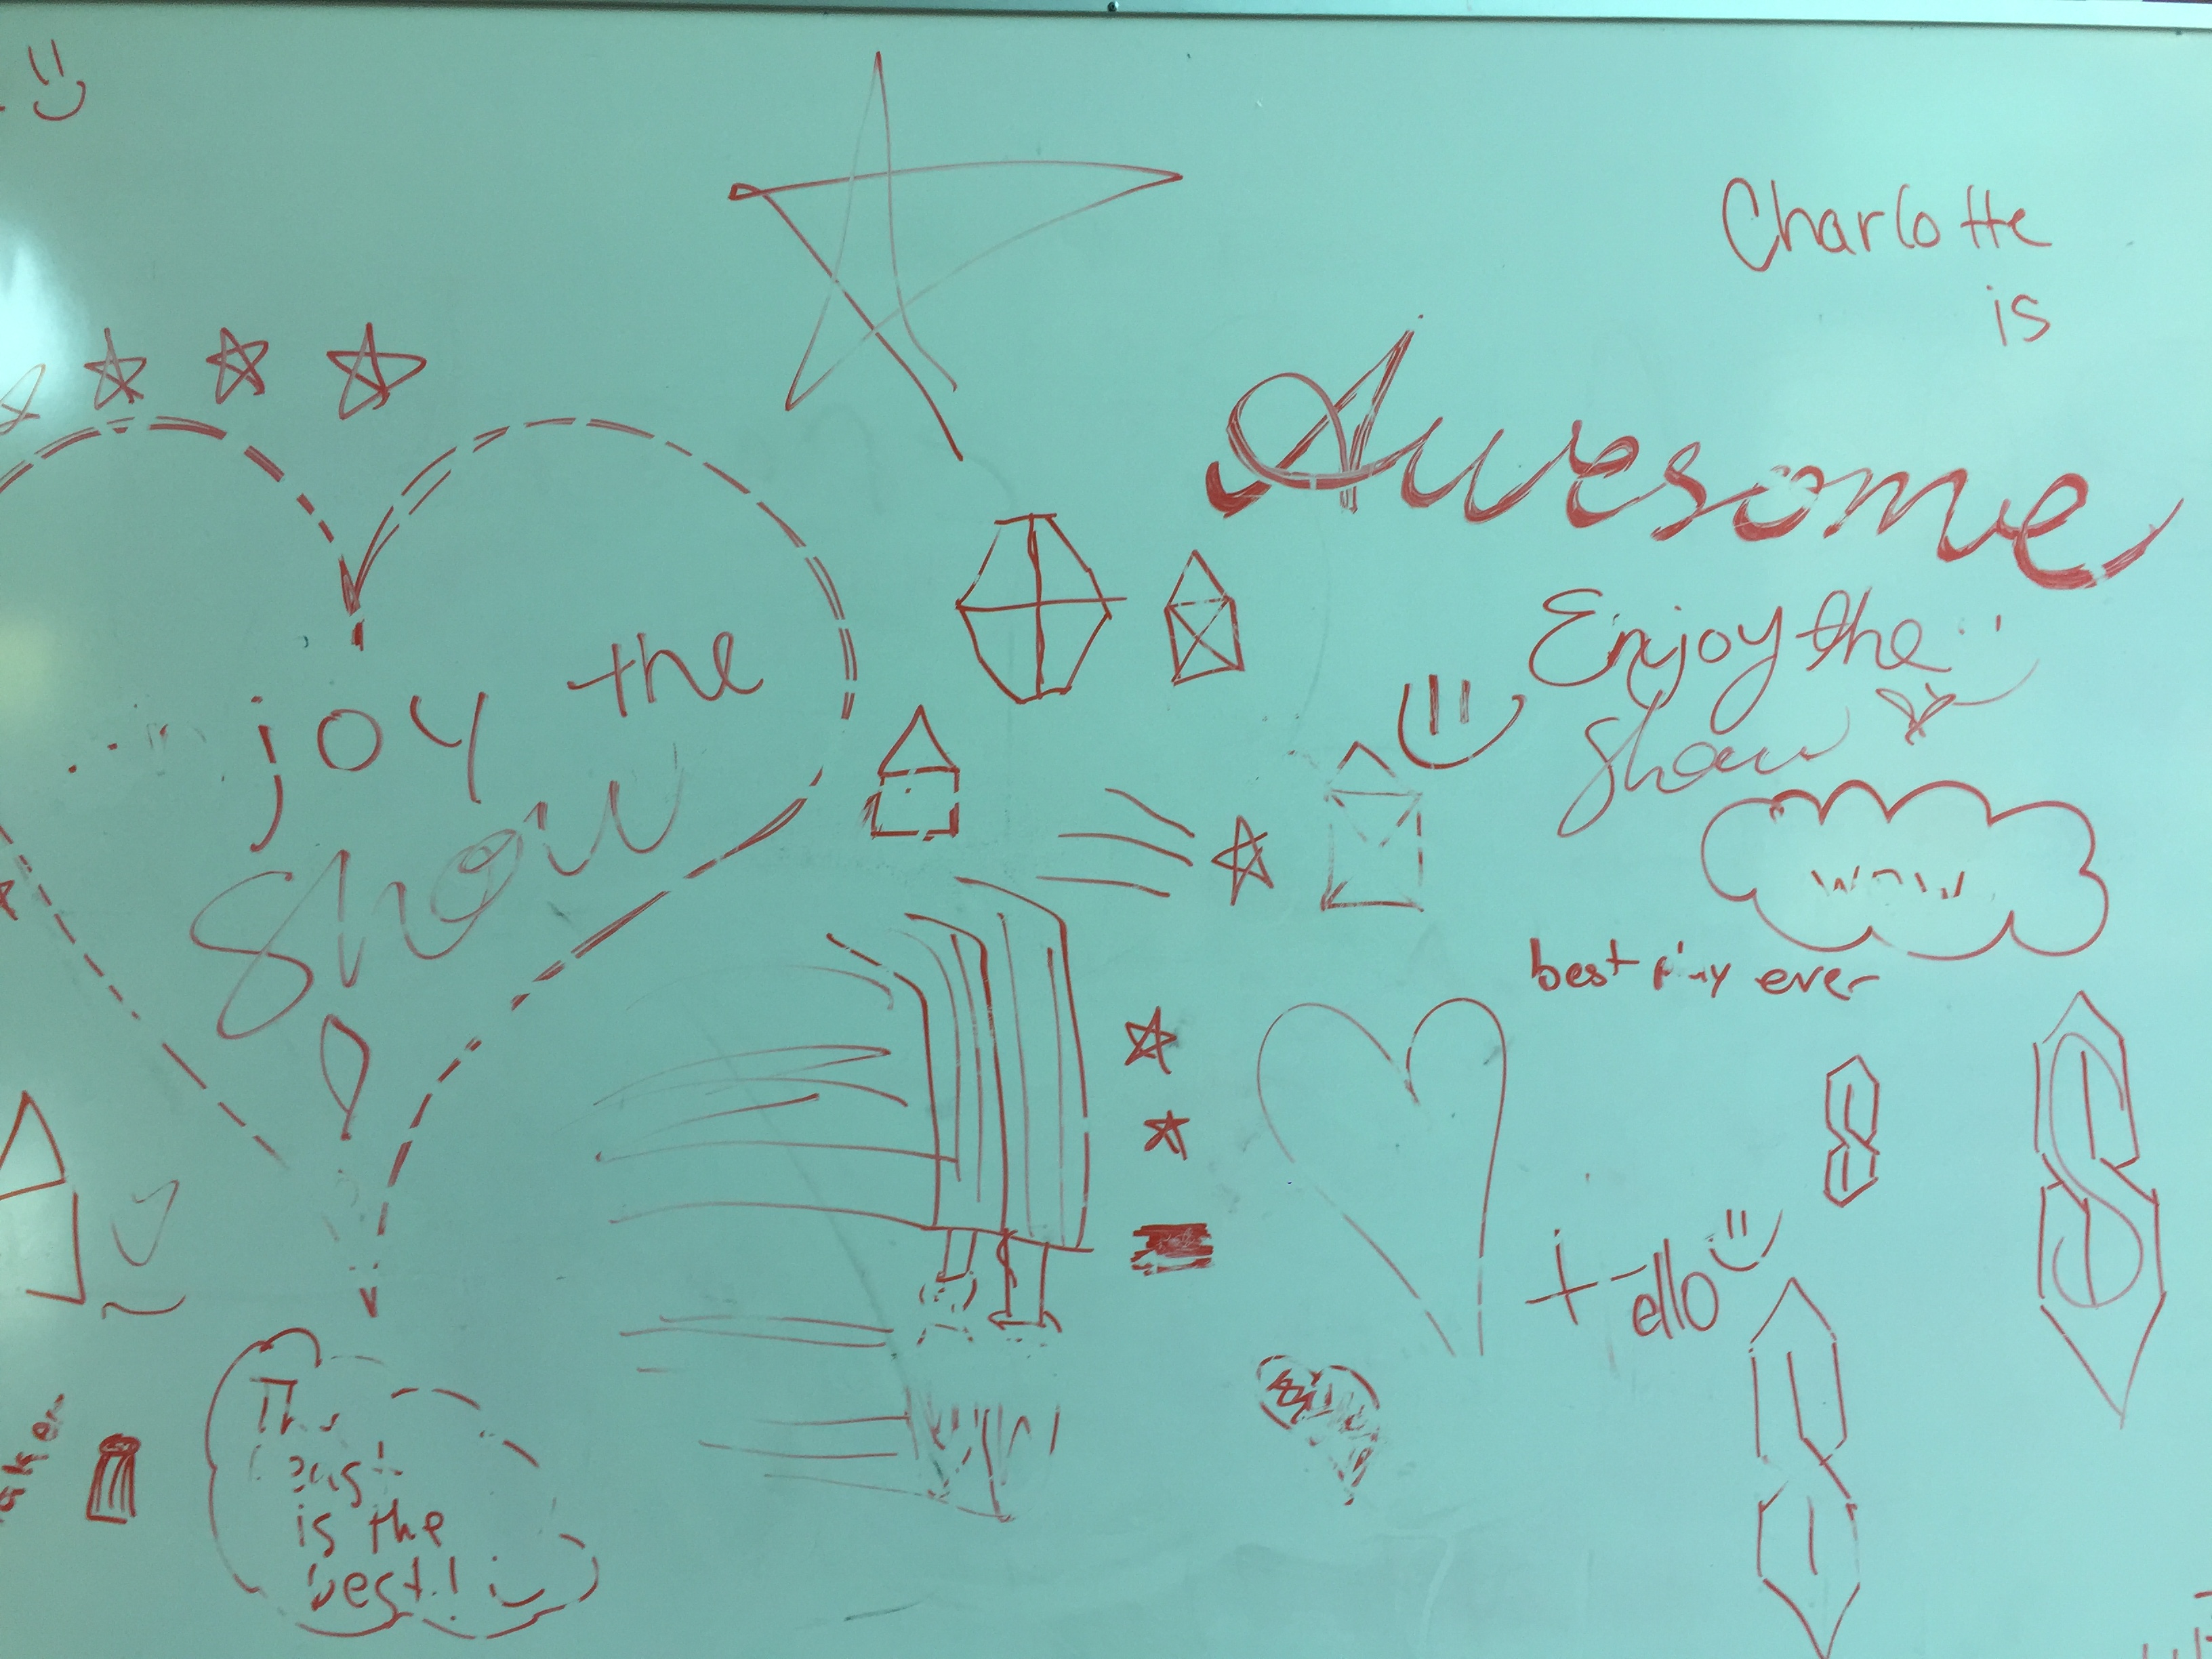 Charlotte
is
Awesome
Enjoy the
show
joy the
show!
wow
best play ever
Hello
The
cast
is the
best!